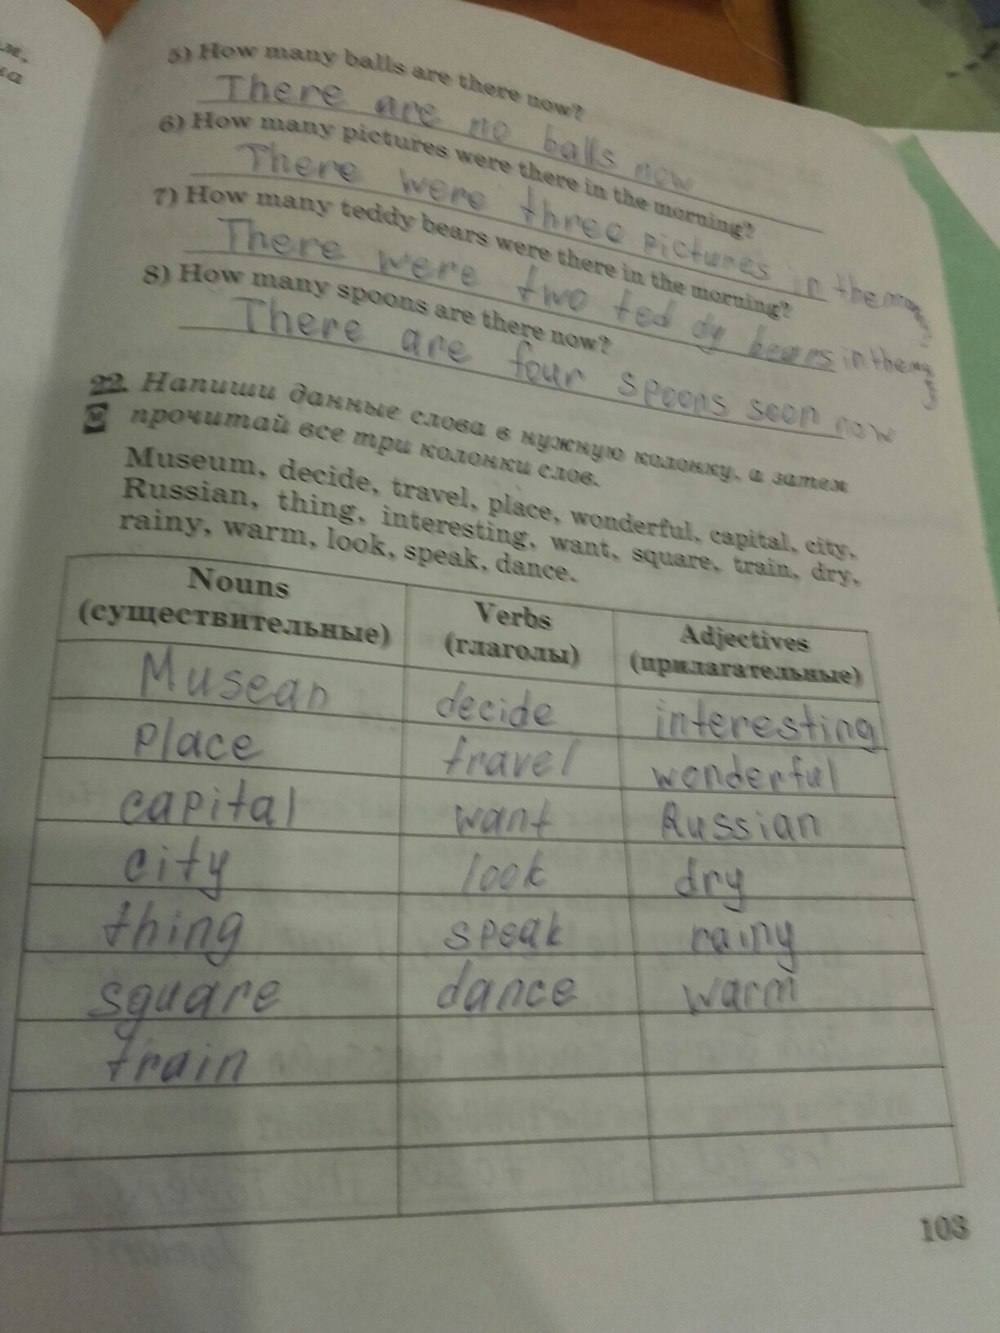 5) How many balls are there now?
There are no balls now
6) How many pictures were there in the morning?
There were three pictures in the morning
7) How many teddy bears were there in the morning?
There were two ted dy bears in the
8) How many spoons are there now?
There are four spoons soon now
22. Напиши данные слова в нужную колонку, а затем
прочитай все три колонки слов.
Museum, decide, travel, place, wonderful, capital, city,
Russian, thing, interesting, want, square, train, dry,
rainy, warm, look, speak, dance.
Nouns Verbs Adjectives
(существительные) (глаголы) (прилагательные)
Musean decide interesting
place travel wonderful
capital want Russian
city look dry
thing speak rainy
square dance warm
train
103